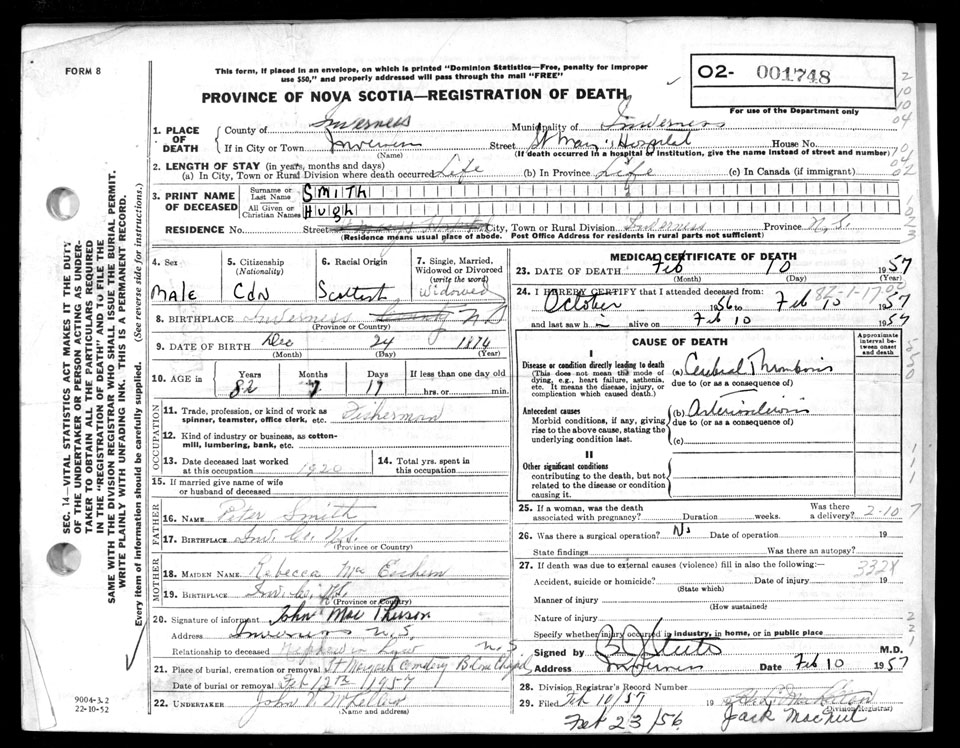 FORM 8
This form, if placed in an envelope, on which is printed "Dominion Statistics—Free, penalty for improper
use $50," and properly addressed will pass through the mail "FREE"
PROVINCE OF NOVA SCOTIA—REGISTRATION OF DEATH
02- 001748
For use of the Department only
1. PLACE OF DEATH
County of Inverness Municipality of Inverness
If in City or Town Inverness Street St Mary's Hospital House No.
(Name) (If death occurred in a hospital or institution, give the name instead of street and number)
2. LENGTH OF STAY (in years, months and days)
(a) In City, Town or Rural Division where death occurred Life (b) In Province Life (c) In Canada (if immigrant)
3. PRINT NAME OF DECEASED
Surname or Last Name SMITH
All Given or Christian Names Hugh
RESIDENCE No. Street City, Town or Rural Division Inverness Province N.S.
(Residence means usual place of abode. Post Office Address for residents in rural parts not sufficient)
4. Sex Male
5. Citizenship (Nationality) Cdn
6. Racial Origin Scottish
7. Single, Married, Widowed or Divorced (write the word) Widowed
8. BIRTHPLACE Inverness County NS
(Province or Country)
9. DATE OF BIRTH Dec 24 1874
(Month) (Day) (Year)
10. AGE in Years Months Days If less than one day old
82 17 hrs. or min.
OCCUPATION
11. Trade, profession, or kind of work as spinner, teamster, office clerk, etc. Fisherman
12. Kind of industry or business, as cotton-mill, lumbering, bank, etc.
13. Date deceased last worked at this occupation 1920
14. Total yrs. spent in this occupation
15. If married give name of wife or husband of deceased
FATHER
16. NAME Peter Smith
17. BIRTHPLACE Inv. Co. N.S.
(Province or Country)
MOTHER
18. MAIDEN NAME Rebecca Mac
19. BIRTHPLACE Inv. Co. N.S.
(Province or Country)
20. Signature of informant John MacPherson
Address Inverness N.S.
Relationship to deceased Nephew in Law N.S.
21. Place of burial, cremation or removal St Margaret Cemetery
Date of burial or removal Feb 12th 1957
22. UNDERTAKER John
(Name and address)
MEDICAL CERTIFICATE OF DEATH
23. DATE OF DEATH Feb 10 1957
(Month) (Day) (Year)
24. I HEREBY CERTIFY that I attended deceased from:
82-1-17 00
October 1956 to Feb 10 1957
and last saw h alive on Feb 10 1957
CAUSE OF DEATH
Approximate interval between onset and death
I
Disease or condition directly leading to death
(This does not mean the mode of dying, e.g., heart failure, asthenia, etc. It means the disease, injury, or complication which caused death.)
(a) Cerebral Thrombosis
due to (or as a consequence of)
Antecedent causes
Morbid conditions, if any, giving rise to the above cause, stating the underlying condition last.
(b) Arteriosclerosis
due to (or as a consequence of)
(c)
II
Other significant conditions
contributing to the death, but not related to the disease or condition causing it.
25. If a woman, was the death associated with pregnancy? Duration weeks. Was there a delivery? 2-10 7
26. Was there a surgical operation? No Date of operation 19
State findings Was there an autopsy?
27. If death was due to external causes (violence) fill in also the following:— 332X
Accident, suicide or homicide? Date of injury 19
(State which)
Manner of injury
(How sustained)
Nature of injury
Specify whether injury occurred in industry, in home, or in public place
Signed by M.D.
Address Inverness Date Feb 10 1957
28. Division Registrar's Record Number
29. Filed Feb 10/57 19
(Division Registrar)
Feb 23/56 Jack MacNeil
SEC. 14—VITAL STATISTICS ACT MAKES IT THE DUTY
OF THE UNDERTAKER OR PERSON ACTING AS UNDER-
TAKER TO OBTAIN ALL THE PARTICULARS REQUIRED
IN THE "REGISTRATION OF DEATH" AND TO FILE THE
SAME WITH THE DIVISION REGISTRAR WHO SHALL ISSUE THE BURIAL PERMIT.
WRITE PLAINLY WITH UNFADING INK. THIS IS A PERMANENT RECORD.
Every item of information should be carefully supplied. (See reverse side for instructions.)
9004-3.2
22-10-52